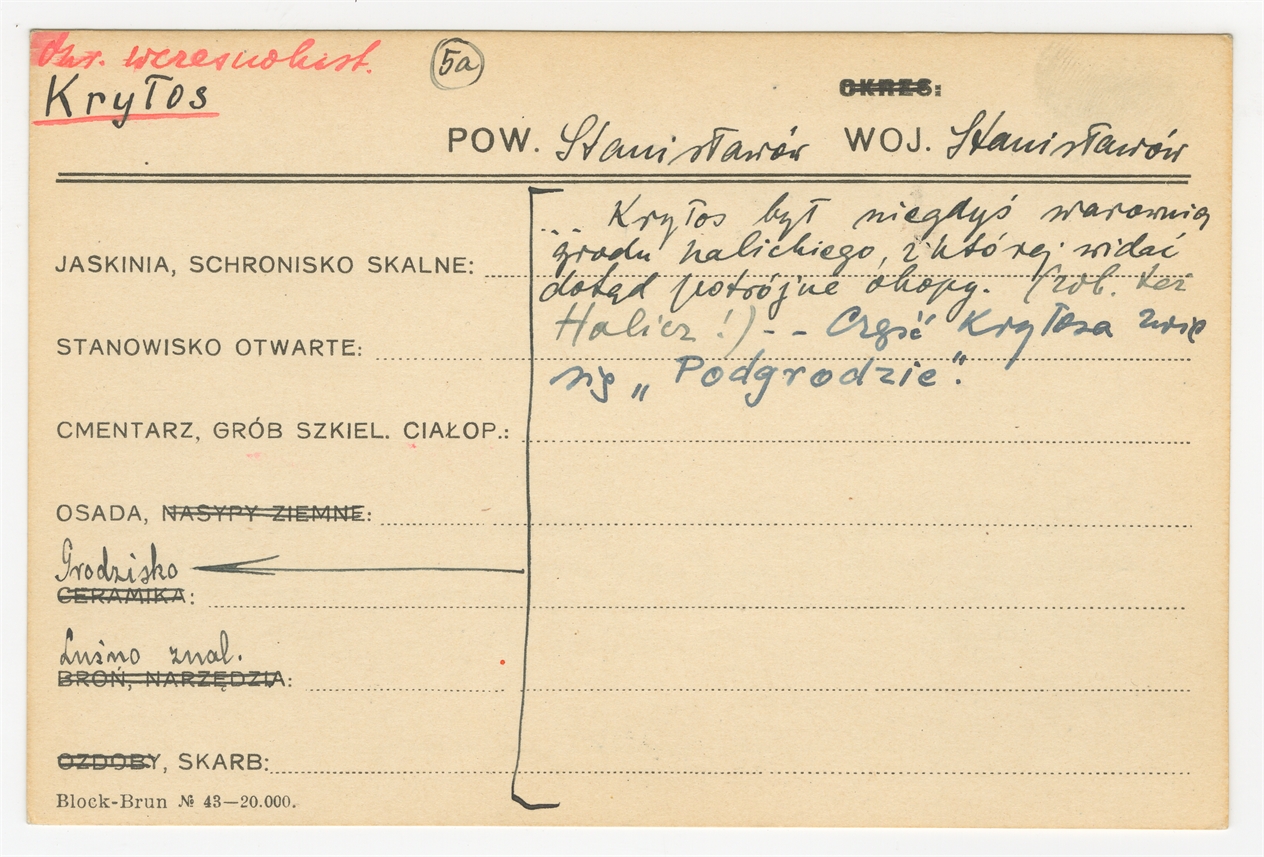 Okr. wczesnohist.
Kryłos
5a
OKRES:
POW. Stanisławów WOJ. Stanisławów
... Kryłos był niegdyś warownią
grodu halickiego, z której widać
JASKINIA, SCHRONISKO SKALNE:
dotąd potrójne okopy. (zob. też
Halicz!) - - Część Kryłosa zwie
STANOWISKO OTWARTE:
się „Podgrodzie".
CMENTARZ, GRÓB SZKIEL. CIAŁOP.:
OSADA, NASYPY ZIEMNE:
Grodzisko
CERAMIKA:
Luźno znal.
BROŃ, NARZĘDZIA:
OZDOBY, SKARB:
Block-Brun № 43—20.000.